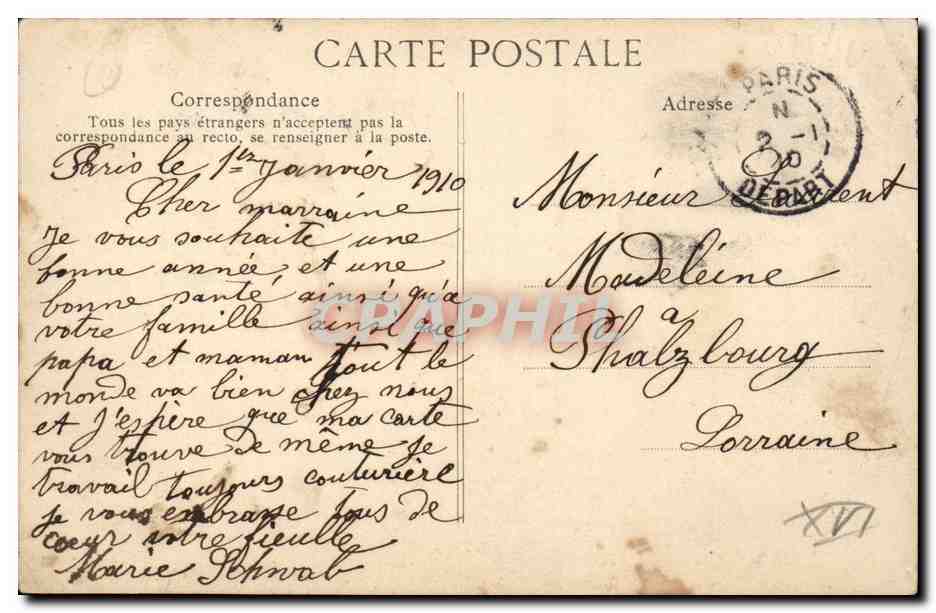 CARTE POSTALE
Correspondance
Tous les pays étrangers n'acceptent pas la
correspondance au recto, se renseigner à la poste.
Paris le 1er Janvier 1910
Cher marraine
Je vous souhaite une
bonne année, et une
bonne santé ainsi qu'a
votre famille ainsi que
papa et maman tout le
monde va bien chez nous
et J'espère que ma carte
vous trouve de même je
travail toujours couturière
je vous embrasse tous de
cœur votre fieulle
Marie Schwab
Adresse
PARIS
N
2 -1
10
DÉPART
Monsieur Laurent
Madeléine
a
Phalzbourg
Lorraine
XVI
CPAPHIL